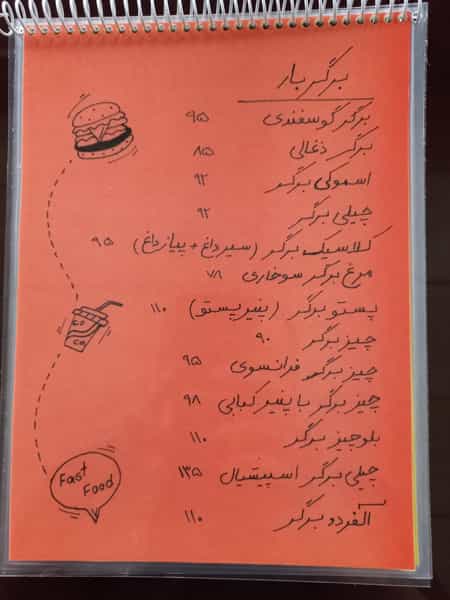 برگر بار
برگر گوسفندی ۹۵
برگر ذغالی ۸۵
اسموکی برگر ۹۲
چیلی برگر ۹۲
کلاسیک برگر (سیر داغ + پیاز داغ) ۹۵
مرغ برگر سوخاری ۷۸
پستو برگر (پنیر پستو) ۱۱۰
چیز برگر ۹۰
چیز برگر فرانسوی ۹۵
چیز برگر با پنیر کبابی ۹۸
بلوچیز برگر ۱۱۰
چیلی برگر اسپیشیال ۱۳۵
آلفردو برگر ۱۱۰
Fast
Food